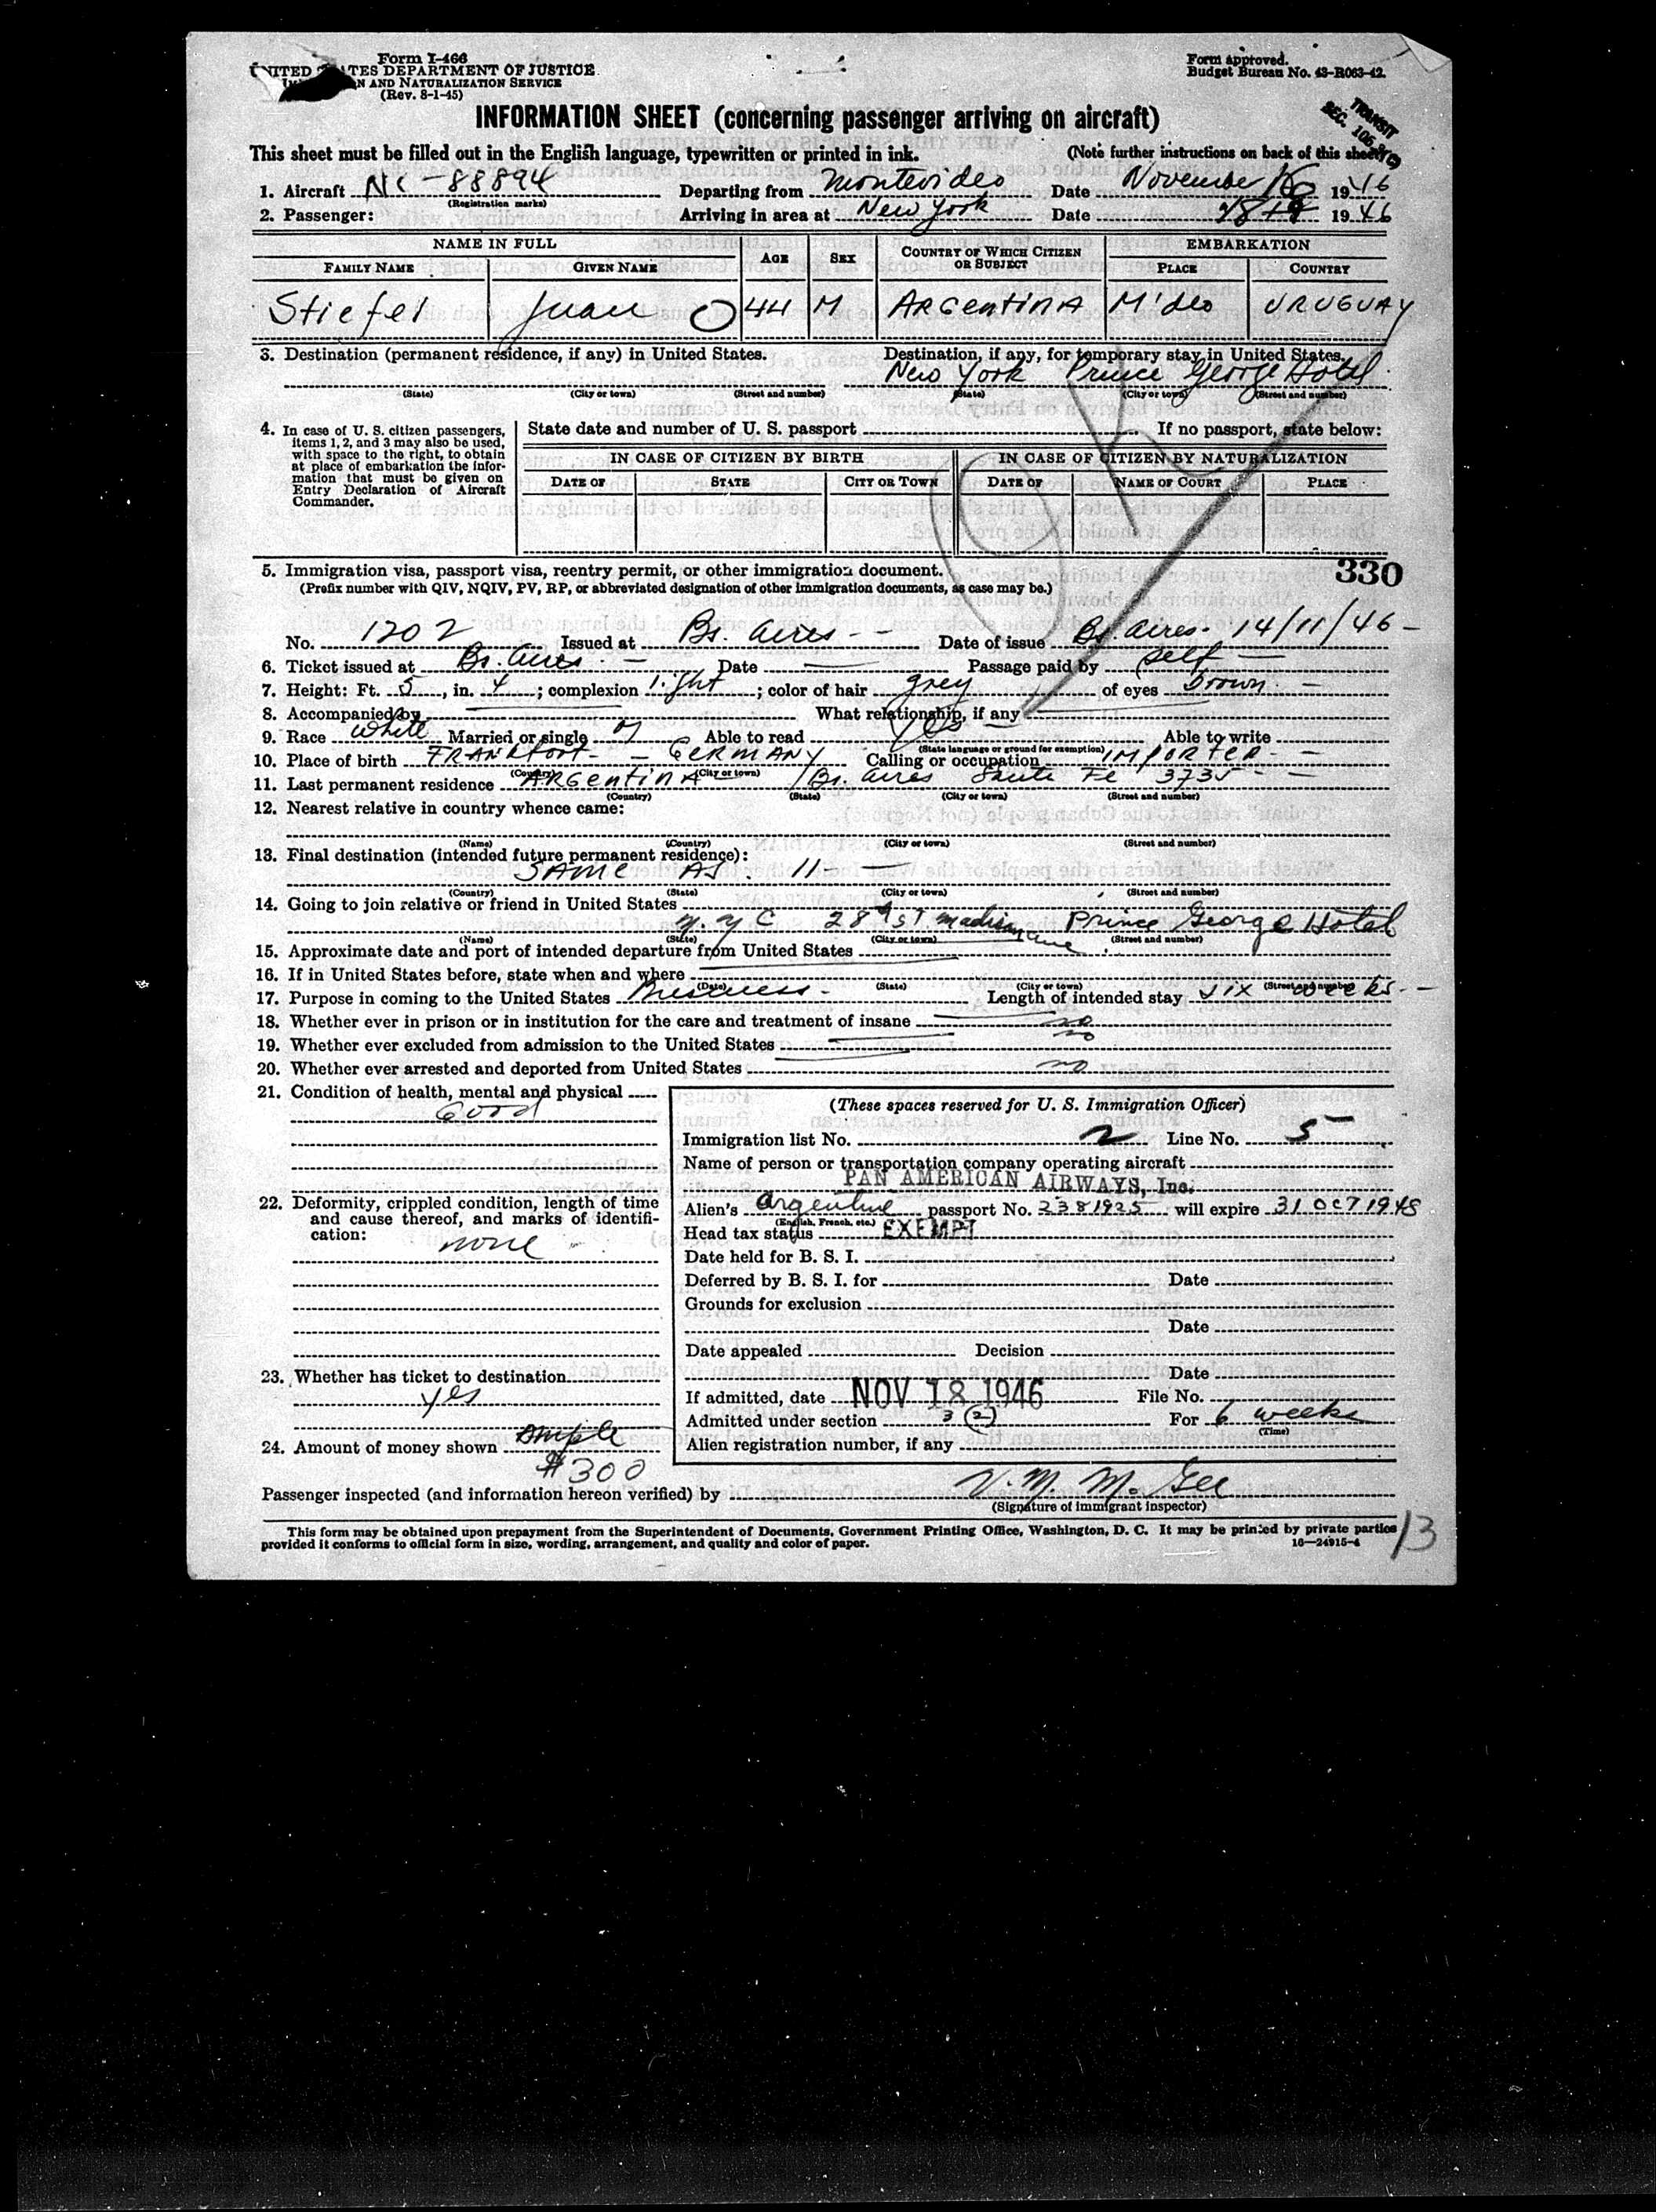 Form I-466
UNITED STATES DEPARTMENT OF JUSTICE
N AND NATURALIZATION SERVICE
(Rev. 8-1-45)
Form approved.
Budget Bureau No. 43-R063-42.
INFORMATION SHEET (concerning passenger arriving on aircraft)
TRANSIT
SEC. 106
This sheet must be filled out in the English language, typewritten or printed in ink. (Note further instructions on back of this sheet)
1. Aircraft NC-88894 Departing from Montevideo Date November 16 1946
(Registration marks)
2. Passenger: Arriving in area at New York Date 18 1946
NAME IN FULL AGE SEX COUNTRY OF WHICH CITIZEN OR SUBJECT EMBARKATION
FAMILY NAME GIVEN NAME PLACE COUNTRY
Stiefel Juan O 44 M ARGENTINA M'deo URUGUAY
3. Destination (permanent residence, if any) in United States. Destination, if any, for temporary stay in United States.
New York Prince George Hotel
(State) (City or town) (Street and number) (State) (City or town) (Street and number)
OK
4. In case of U. S. citizen passengers, items 1, 2, and 3 may also be used, with space to the right, to obtain at place of embarkation the information that must be given on Entry Declaration of Aircraft Commander.
State date and number of U. S. passport If no passport, state below:
IN CASE OF CITIZEN BY BIRTH IN CASE OF CITIZEN BY NATURALIZATION
DATE OF STATE CITY OR TOWN DATE OF NAME OF COURT PLACE
5. Immigration visa, passport visa, reentry permit, or other immigration document. 330
(Prefix number with QIV, NQIV, PV, RP, or abbreviated designation of other immigration documents, as case may be.)
No. 1202 Issued at Bs. Aires -- Date of issue Bs. Aires- 14/11/46 -
6. Ticket issued at Bs. Aires. — Date — Passage paid by self —
7. Height: Ft. 5, in. 4; complexion light; color of hair grey of eyes brown. -
8. Accompanied by What relationship, if any
9. Race White Married or single M Able to read yes Able to write
(State language or ground for exemption)
10. Place of birth FRANKfort - GERMANY Calling or occupation IMPORTER -
(Country) (City or town)
11. Last permanent residence ARGENTINA / Bs. Aires Santa Fe 3735 - -
(Country) (State) (City or town) (Street and number)
12. Nearest relative in country whence came:
(Name) (Country) (City or town) (Street and number)
13. Final destination (intended future permanent residence):
SAME AS. 11- —
(Country) (State) (City or town) (Street and number)
14. Going to join relative or friend in United States
N.Y.C 28th ST. Madison Ave Prince George Hotel
(Name) (State) (City or town) (Street and number)
15. Approximate date and port of intended departure from United States
16. If in United States before, state when and where
(Date) (State) (City or town) (Street and number)
17. Purpose in coming to the United States Business - Length of intended stay six weeks. -
18. Whether ever in prison or in institution for the care and treatment of insane no
19. Whether ever excluded from admission to the United States no
20. Whether ever arrested and deported from United States no
21. Condition of health, mental and physical
Good
22. Deformity, crippled condition, length of time and cause thereof, and marks of identification:
none
23. Whether has ticket to destination
yes
24. Amount of money shown ample
$300
(These spaces reserved for U. S. Immigration Officer)
Immigration list No. 2 Line No. 5
Name of person or transportation company operating aircraft
PAN AMERICAN AIRWAYS, Inc.
Alien's Argentine passport No. 2381925 will expire 31 OCT 1948
(English, French, etc.)
Head tax status EXEMPT
Date held for B. S. I.
Deferred by B. S. I. for Date
Grounds for exclusion
Date
Date appealed Decision
Date
If admitted, date NOV 18 1946 File No.
Admitted under section 3 (2) For 6 weeks
(Time)
Alien registration number, if any
Passenger inspected (and information hereon verified) by V. M. McGee
(Signature of immigrant inspector)
This form may be obtained upon prepayment from the Superintendent of Documents, Government Printing Office, Washington, D. C. It may be printed by private parties
provided it conforms to official form in size, wording, arrangement, and quality and color of paper. 16—24915-4
13